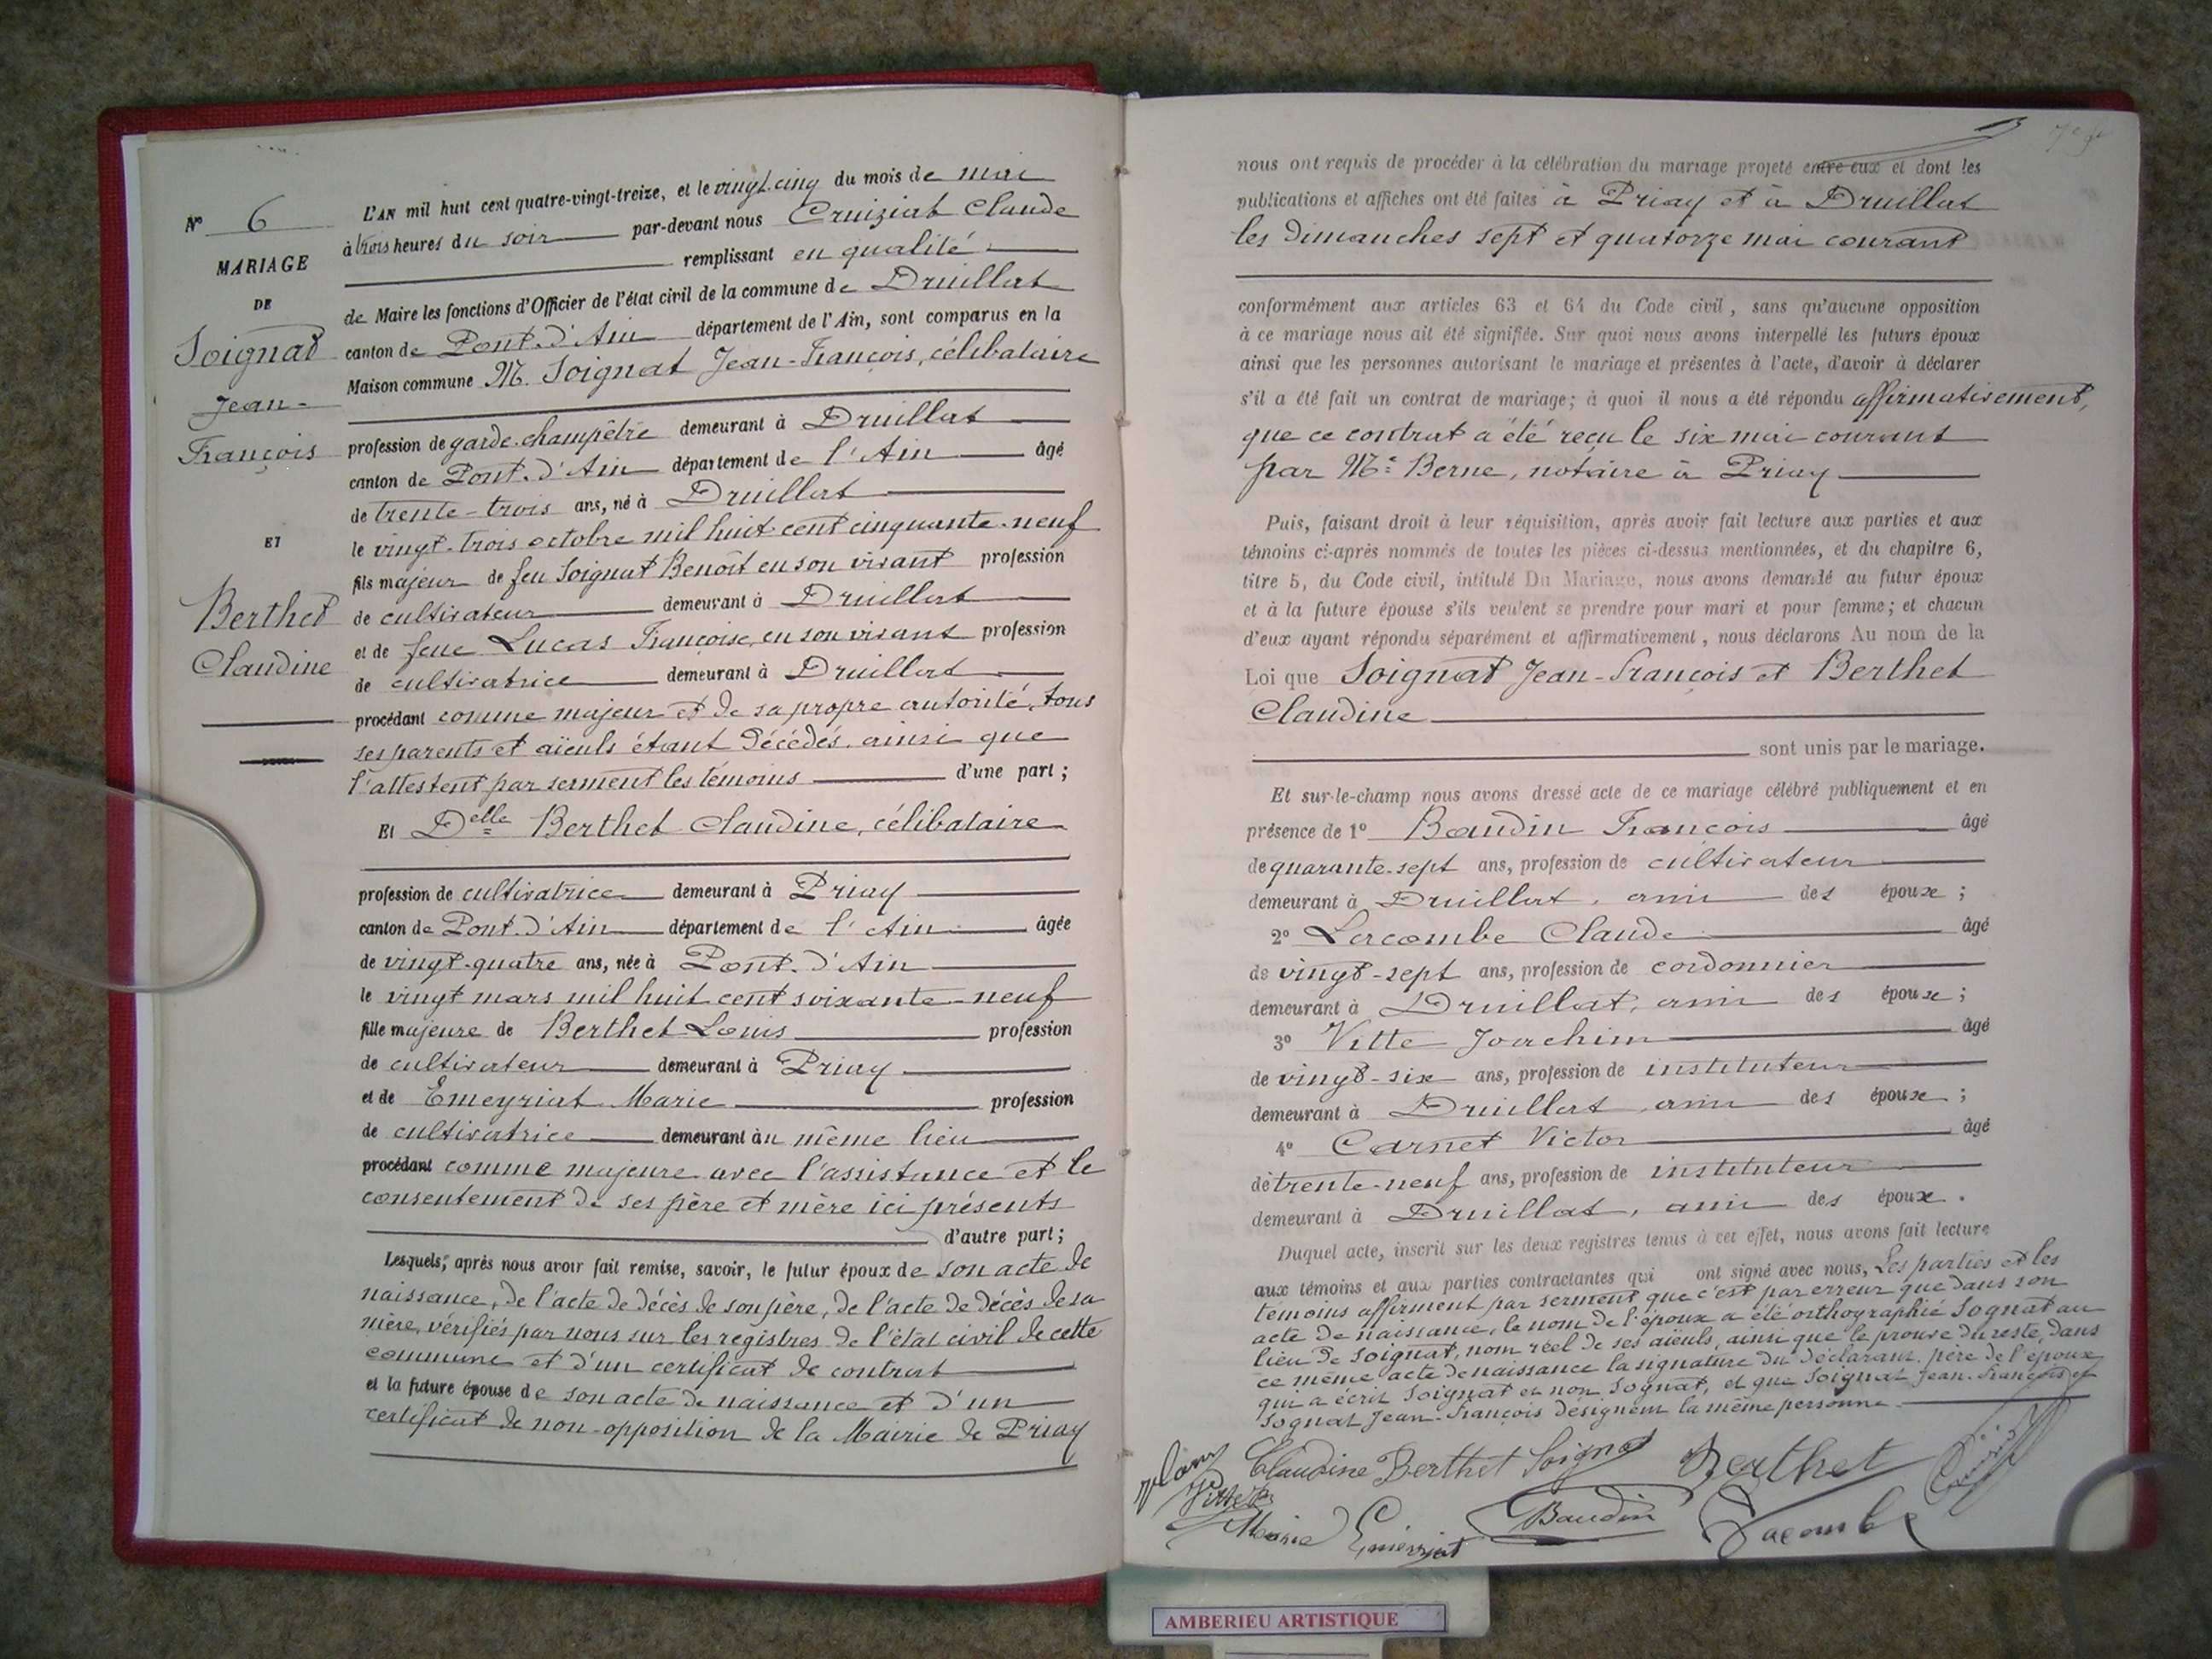 N° 6
MARIAGE
DE
Soignat
Jean-
François
ET
Berthet
Claudine
L'AN mil huit cent quatre-vingt-treize, et le vingt-cinq du mois de mai
à trois heures du soir par-devant nous Cruiziat Claude
remplissant en qualité
de Maire les fonctions d'Officier de l'état civil de la commune de Druillat
canton de Pont-d'Ain département de l'Ain, sont comparus en la
Maison commune M. Soignat Jean-François, célibataire
profession de garde-champêtre demeurant à Druillat
canton de Pont-d'Ain département de l'Ain âgé
de trente-trois ans, né à Druillat
le vingt-trois octobre mil huit cent cinquante-neuf
fils majeur de feu Soignat Benoît en son vivant profession
de cultivateur demeurant à Druillat
et de feue Lucas Françoise, en son vivant profession
de cultivatrice demeurant à Druillat
procédant comme majeur et de sa propre autorité, tous
ses parents et aïeuls étant décédés, ainsi que
l'attestent par serment les témoins d'une part ;
Et Delle Berthet Claudine, célibataire
profession de cultivatrice demeurant à Priay
canton de Pont-d'Ain département de l'Ain âgée
de vingt-quatre ans, née à Pont-d'Ain
le vingt mars mil huit cent soixante-neuf
fille majeure de Berthet Louis profession
de cultivateur demeurant à Priay
et de Emeyriat Marie profession
de cultivatrice demeurant au même lieu
procédant comme majeure avec l'assistance et le
consentement de ses père et mère ici présents
d'autre part ;
Lesquels, après nous avoir fait remise, savoir, le futur époux de son acte de
naissance, de l'acte de décès de son père, de l'acte de décès de sa
mère, vérifiés par nous sur les registres de l'état civil de cette
commune et d'un certificat de contrat
et la future épouse de son acte de naissance et d'un
certificat de non-opposition de la Mairie de Priay
nous ont requis de procéder à la célébration du mariage projeté entre eux et dont les
publications et affiches ont été faites à Priay et à Druillat
les dimanches sept et quatorze mai courant
conformément aux articles 63 et 64 du Code civil, sans qu'aucune opposition
à ce mariage nous ait été signifiée. Sur quoi nous avons interpellé les futurs époux
ainsi que les personnes autorisant le mariage et présentes à l'acte, d'avoir à déclarer
s'il a été fait un contrat de mariage ; à quoi il nous a été répondu affirmativement,
que ce contrat a été reçu le six mai courant
par Me Berne, notaire à Priay
Puis, faisant droit à leur réquisition, après avoir fait lecture aux parties et aux
témoins ci-après nommés de toutes les pièces ci-dessus mentionnées, et du chapitre 6,
titre 5, du Code civil, intitulé Du Mariage, nous avons demandé au futur époux
et à la future épouse s'ils veulent se prendre pour mari et pour femme ; et chacun
d'eux ayant répondu séparément et affirmativement, nous déclarons Au nom de la
Loi que Soignat Jean-François et Berthet
Claudine
sont unis par le mariage.
Et sur-le-champ nous avons dressé acte de ce mariage célébré publiquement et en
présence de 1° Baudin François âgé
de quarante-sept ans, profession de cultivateur
demeurant à Druillat, ami des époux ;
2° Lacombe Claude âgé
de vingt-sept ans, profession de cordonnier
demeurant à Druillat, ami des époux ;
3° Vitte Joachim âgé
de vingt-six ans, profession de instituteur
demeurant à Druillat, ami des époux ;
4° Carnet Victor âgé
de trente-neuf ans, profession de instituteur
demeurant à Druillat, ami des époux.
Duquel acte, inscrit sur les deux registres tenus à cet effet, nous avons fait lecture
aux témoins et aux parties contractantes qui ont signé avec nous, Les parties et les
témoins affirment par serment que c'est par erreur que dans son
acte de naissance, le nom de l'époux a été orthographié Sognat au
lieu de Soignat, nom réel de ses aïeuls, ainsi que le prouve du reste, dans
ce même acte de naissance la signature du déclarant, père de l'époux
qui a écrit Soignat et non Sognat, et que Soignat Jean-François et
Sognat Jean-François désignent la même personne.
Claudine Berthet Soignat Berthet
Vitte
Marie Emeyriat Baudin Lacombe
AMBERIEU ARTISTIQUE